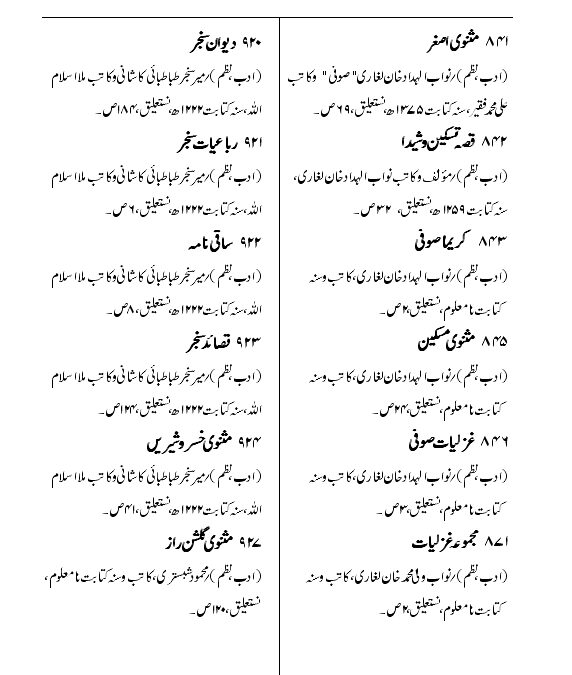 ۸۴۱ مثنوی اصغر
(ادب،نظم)/نواب الہداد خان لغاری "صوفی" وکاتب
علی محمد فقیر،سنہ کتابت ۱۲۷۵ھ،نستعلیق،۶۹ص۔
۸۴۲ قصہ تسکین و شیدا
(ادب،نظم)/مؤلف وکاتب نواب الہداد خان لغاری،
سنہ کتابت ۱۲۵۹ھ،نستعلیق، ۳۲ص۔
۸۴۳ کریما صوفی
(ادب،نظم)/نواب الہداد خان لغاری،کاتب وسنہ
کتابت نامعلوم،نستعلیق،۲ص۔
۸۴۵ مثنوی مسکین
(ادب،نظم)/نواب الہداد خان لغاری،کاتب وسنہ
کتابت نامعلوم،نستعلیق،۲۴ص۔
۸۴۶ غزلیات صوفی
(ادب،نظم)/نواب الہداد خان لغاری،کاتب وسنہ
کتابت نامعلوم،نستعلیق،۳ص۔
۸۷۱ مجموعہ غزلیات
(ادب،نظم)/نواب ولی محمد خان لغاری،کاتب وسنہ
کتابت نامعلوم،نستعلیق،۲ص۔
۹۲۰ دیوان سنجر
(ادب،نظم)/میر سنجر طباطبائی کاشانی وکاتب ملا اسلام
اللہ،سنہ کتابت ۱۲۲۲ھ،نستعلیق،۱۸۴ص۔
۹۲۱ رباعیات سنجر
(ادب،نظم)/میر سنجر طباطبائی کاشانی وکاتب ملا اسلام
اللہ،سنہ کتابت ۱۲۲۲ھ،نستعلیق،۶ص۔
۹۲۲ ساقی نامہ
(ادب،نظم)/میر سنجر طباطبائی کاشانی وکاتب ملا اسلام
اللہ،سنہ کتابت ۱۲۲۲ھ،نستعلیق،۸ص۔
۹۲۳ قصائد سنجر
(ادب،نظم)/میر سنجر طباطبائی کاشانی وکاتب ملا اسلام
اللہ،سنہ کتابت ۱۲۲۲ھ،نستعلیق،۱۲۴ص۔
۹۲۴ مثنوی خسرو شیریں
(ادب،نظم)/میر سنجر طباطبائی کاشانی وکاتب ملا اسلام
اللہ،سنہ کتابت ۱۲۲۲ھ،نستعلیق،۴۱ص۔
۹۲۷ مثنوی گلشن راز
(ادب،نظم)/محمود شبستری،کاتب وسنہ کتابت نامعلوم،
نستعلیق،۱۲۰ص۔